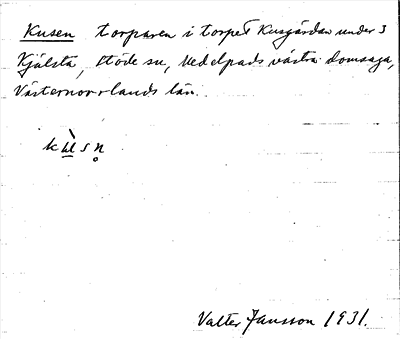 Kusen torparen i torpet Kusgården under 3
Kjälsta, Stöde sn, Medelpads västra domsaga,
Västernorrlands län.
kὺsn̥
Valter Jansson 1931.